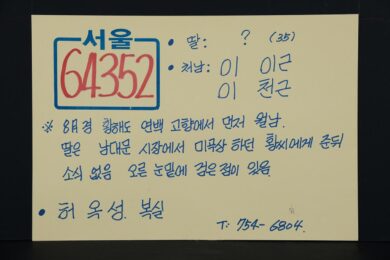 서울
64352
• 딸: ? (35)
• 처남: 이 이근
이 천근
※ 8月경 황해도 연백 고향에서 먼저 월남.
딸은 남대문 시장에서 미곡상 하던 황씨에게 준뒤
소식 없음 오른 눈밑에 검은점이 있음
• 허 옥성. 복실
T: 754-6804.